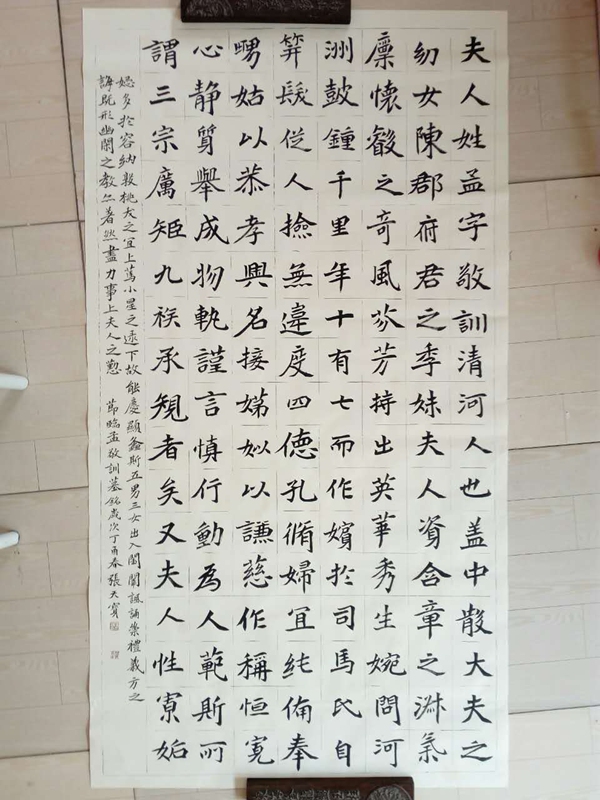 夫人姓孟字敬訓清河人也盖中散大夫之
幼女陳郡府君之季妹夫人資含章之淋氣
廩懷叡之奇風芬芳持出英華秀生婉問河
洲鼓鍾千里年十有七而作嬪於司馬氏自
笄髮從人撿無違度四德孔脩婦宜純備奉
舅姑以恭孝興名接娣姒以謙慈作稱恒寬
心静質舉成物軌謹言慎行動為人範斯所
謂三宗厲矩九族承規者矣又夫人性寡妬
多於容納敦桃夭之宜上篤小星之逮下故能慶顯螽斯五男三女出入閨闈諷誦崇禮義方之
誨既形幽閑之教亦著然盡力事上夫人之懃 節臨孟敬訓墓銘歲次丁酉春張天寶